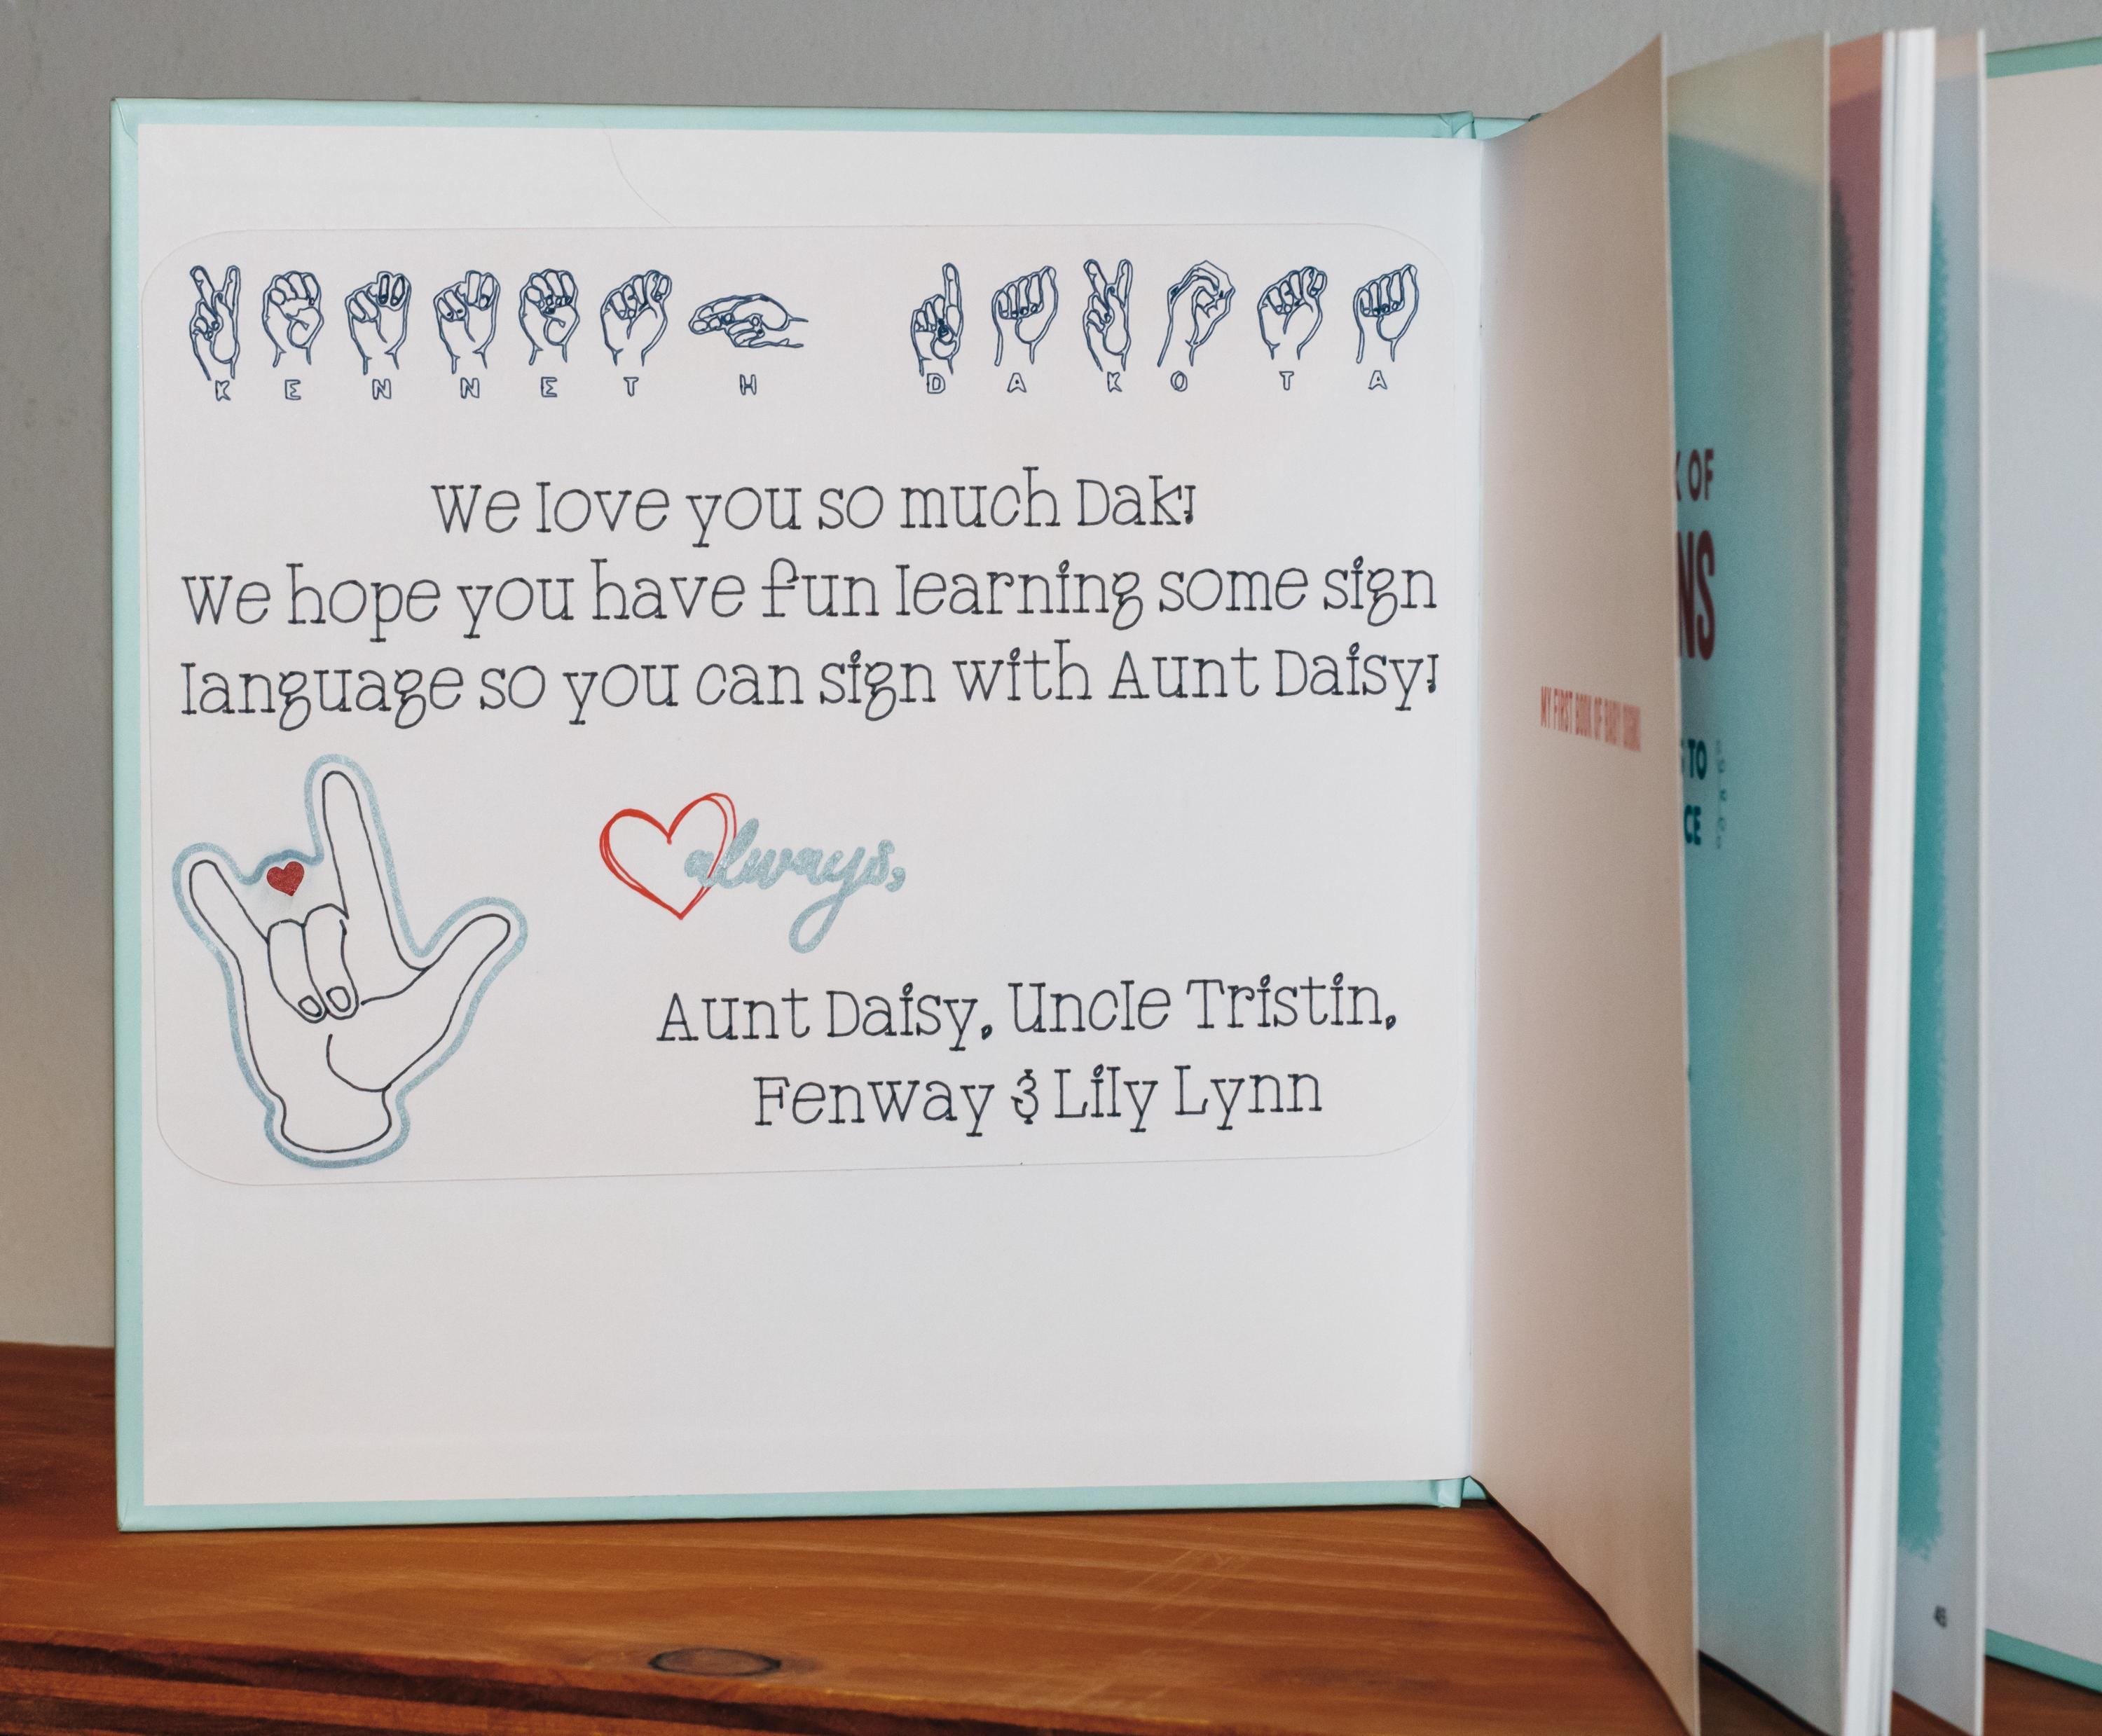 KENNETH DAKOTA
We love you so much Dak!
We hope you have fun learning some sign
language so you can sign with Aunt Daisy!
always,
Aunt Daisy, Uncle Tristin,
Fenway & Lily Lynn
MY FIRST BOOK OF BABY SIGNS
OF
NS
TO
CE
45